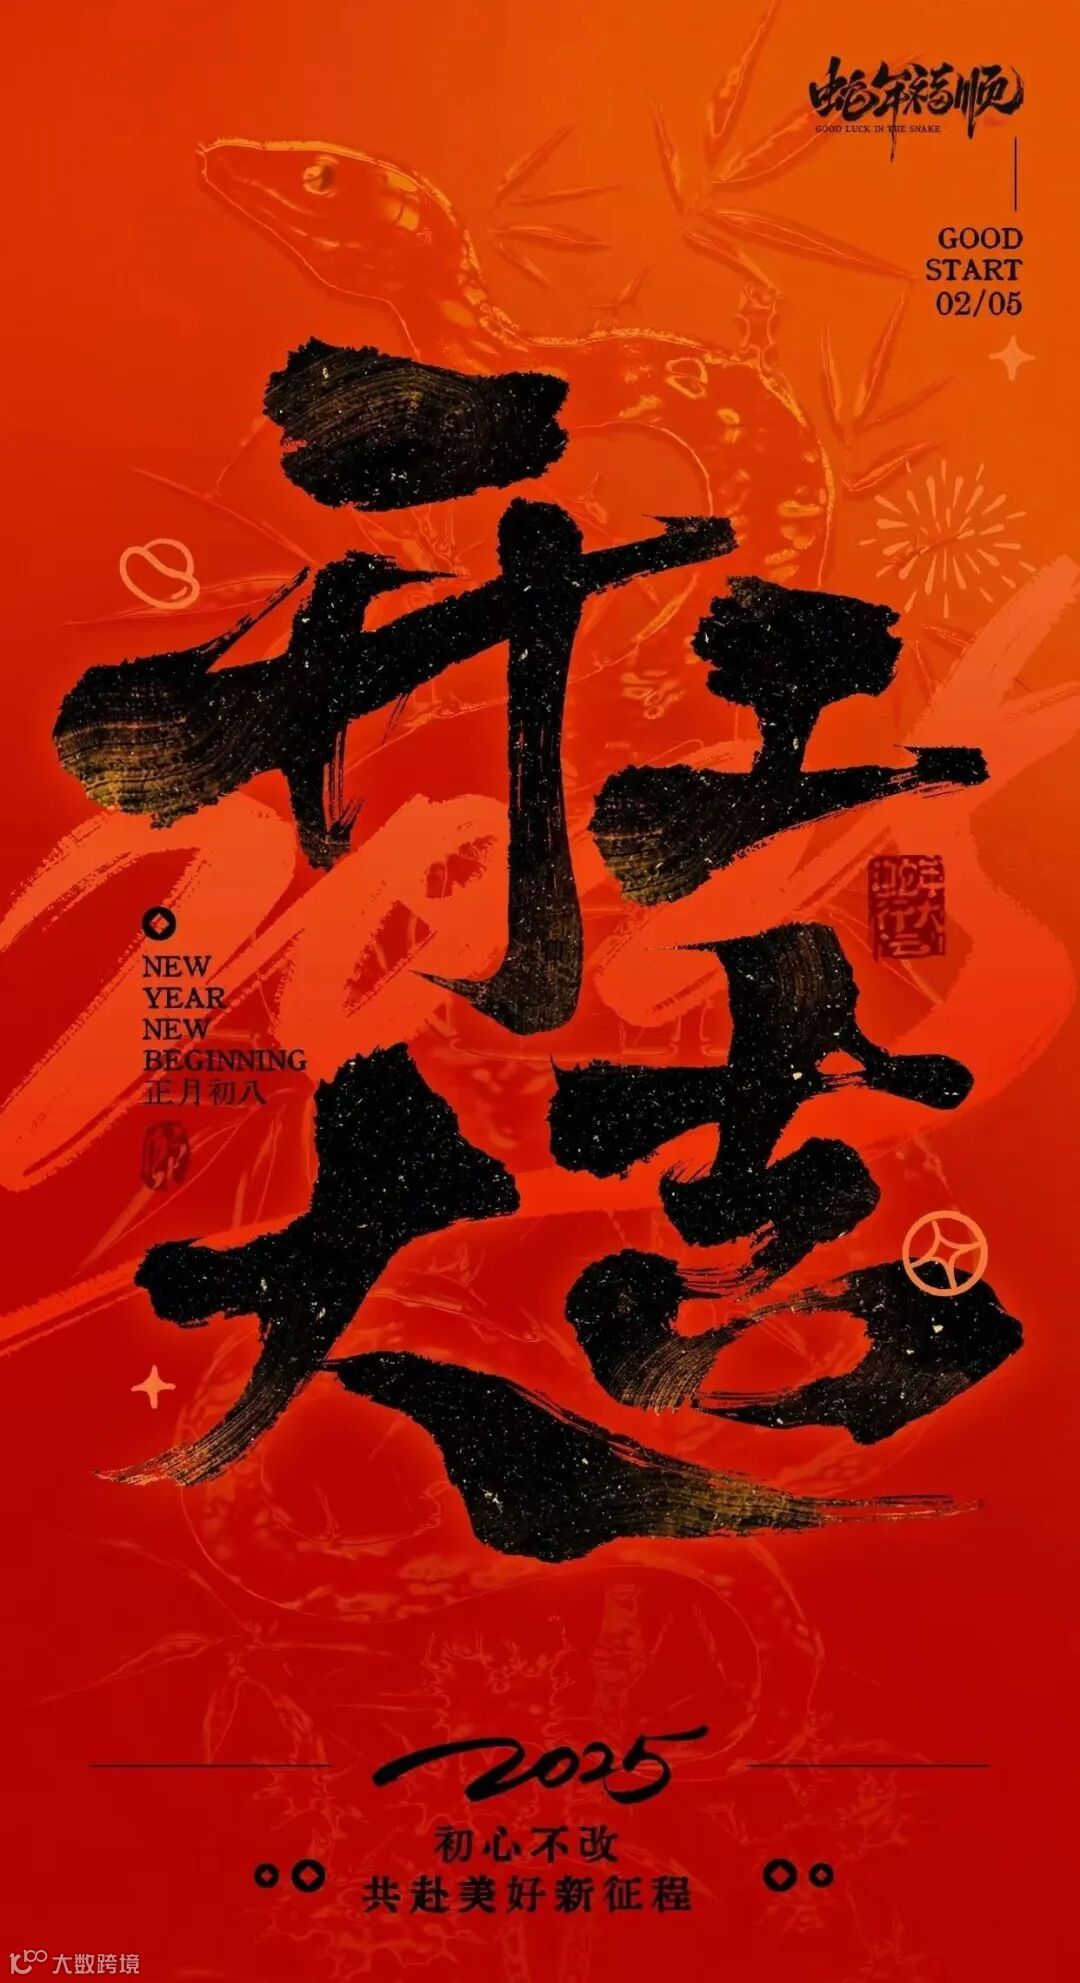 蛇年福顺
GOOD LUCK IN THE SNAKE
GOOD
START
02/05
开工
大吉
蛇年
大
行
NEW
YEAR
NEW
BEGINNING
正月初八
2025
2025
初心不改
共赴美好新征程
大数跨境